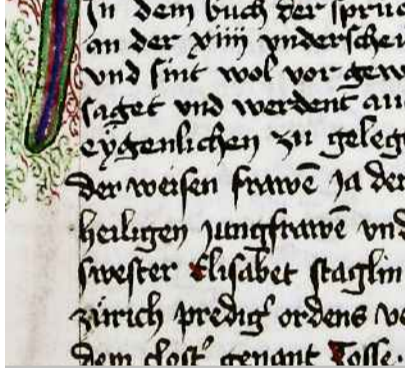 In dem buch der spruc
an der xiiii vnderschei
vnd sint wol vor gew
saget vnd werdent au
eygenlichen zu geleg
der weisen frawē ja der
heiligen jungfrawē vnd
swester Elisabet staglin
zürich predig' ordens ve
dem clost' genant Tosse.